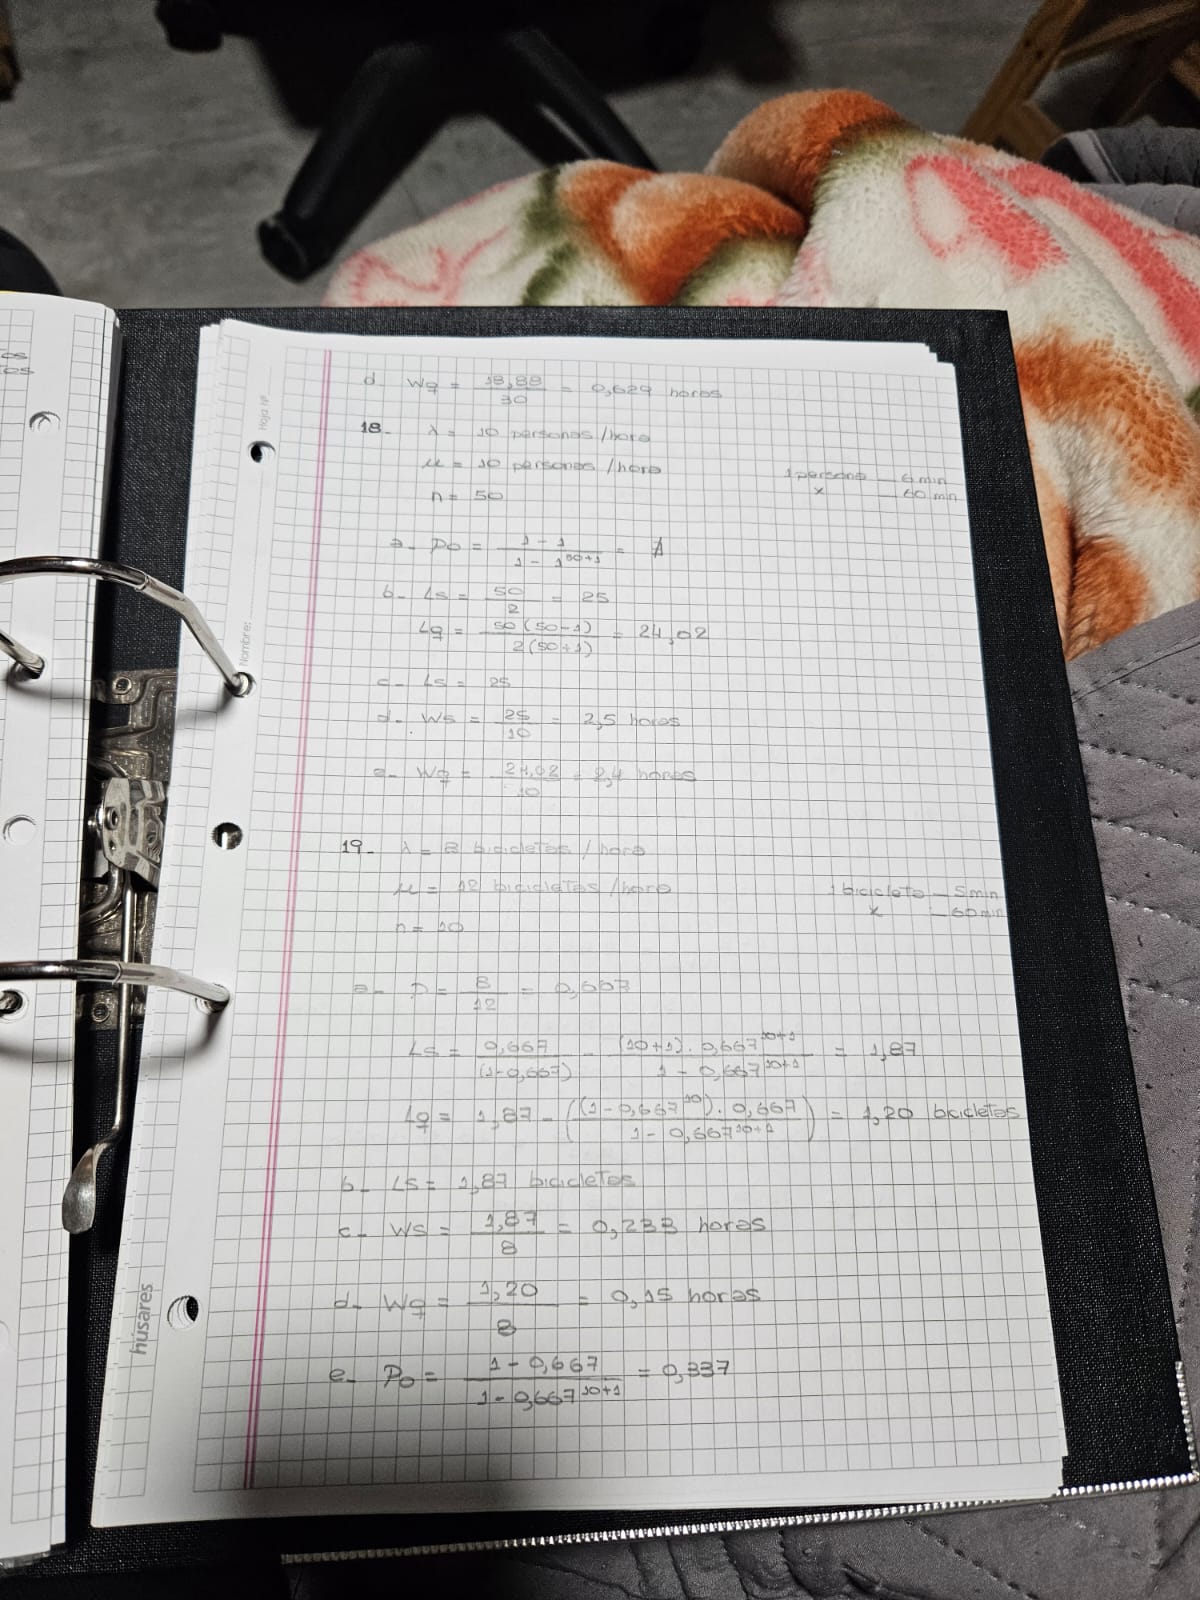 os
tos
Hoja Nº
d- Wq = 18,88 / 30 = 0,629 horas
18- λ = 10 personas /hora
μ = 10 personas /hora
1 persona — 6 min
n = 50
x — 60 min
a- Po = 1 - 1 / 1 - 1^50+1 =
b- Ls = 50 / 2 = 25
Lq = 50 (50-1) / 2 (50+1) = 24,02
Nombre:
c- Ls = 25
d- Ws = 25 / 10 = 2,5 horas
e- Wq = 24,02 / 10 = 2,4 horas
19- λ = 8 bicicletas /hora
μ = 12 bicicletas /hora
1 bicicleta — 5 min
x — 60 min
n = 10
a- P = 8 / 12 = 0,667
Ls = 0,667 / (1-0,667) - (10+1) . 0,667^10+1 / 1 - 0,667^10+1 = 1,87
Lq = 1,87 - ((1-0,667^10) . 0,667 / 1 - 0,667^10+1) = 1,20 bicicletas
b- Ls = 1,87 bicicletas
c- Ws = 1,87 / 8 = 0,233 horas
d- Wq = 1,20 / 8 = 0,15 horas
e- Po = 1 - 0,667 / 1 - 0,667^10+1 = 0,337
húsares